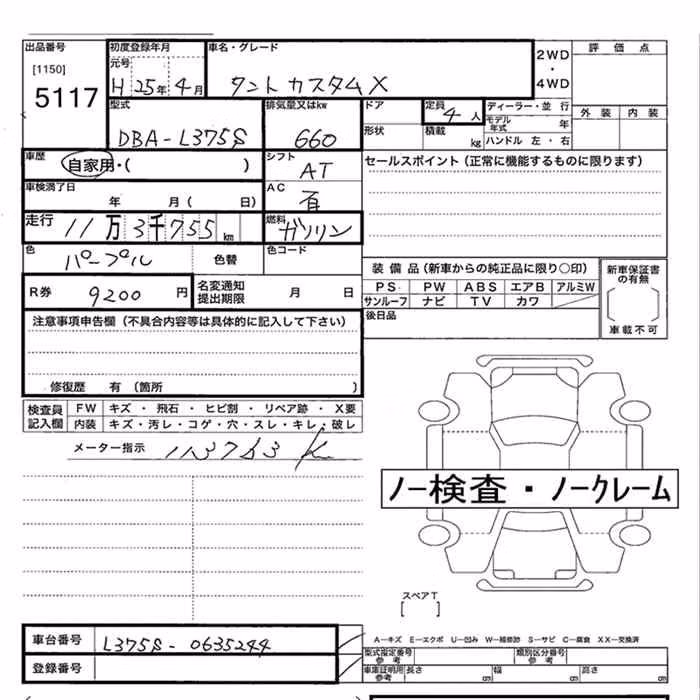 出品番号 初度登録年月 車名・グレード 2WD・4WD 評価点
[1150] 元号
5117 H 25年 4月 タント カスタム X
型式 排気量又はkw ドア 定員 4 人 ディーラー・並 行 外装 内装
DBA-L375S 660 形状 積載 kg モデル年式 年
ハンドル 左・右
車歴 自家用・( ) シフト AT セールスポイント(正常に機能するものに限ります)
車検満了日 年 月( 日) AC 有
走行 11万3千755 km 燃料 ガソリン
色 パープル 色替 色コード 装備品(新車からの純正品に限り〇印) 新車保証書の有無
R券 9200 円 名変通知提出期限 月 日 PS PW ABS エアB アルミW
サンルーフ ナビ TV カワ
注意事項申告欄(不具合内容等は具体的に記入して下さい) 後日品 車載不可
修復歴 有(箇所 )
検査員記入欄 FW キズ・飛石・ヒビ割・リペア跡・X要
内装 キズ・汚レ・コゲ・穴・スレ・キレ・破レ
メーター指示 113763 K
ノー検査・ノークレーム
スペアT
[ ]
車台番号 L375S-0635244 A-キズ E-エクボ U-凹み W-補修跡 S-サビ C-腐食 XX-交換済
型式指定番号 参考 類別区分番号 参考
登録番号 車庫証明用 参考 長さ cm 幅 cm 高さ cm